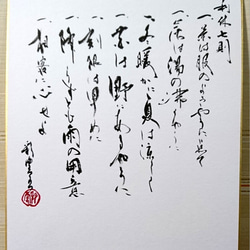 利休七則
一茶は服のよきやうに点て
一炭は湯の沸くやうに
一冬暖かに夏は涼しく
一花は野にあるやうに
一刻限は早めに
一降らずとも雨の用意
一相客に心せよ